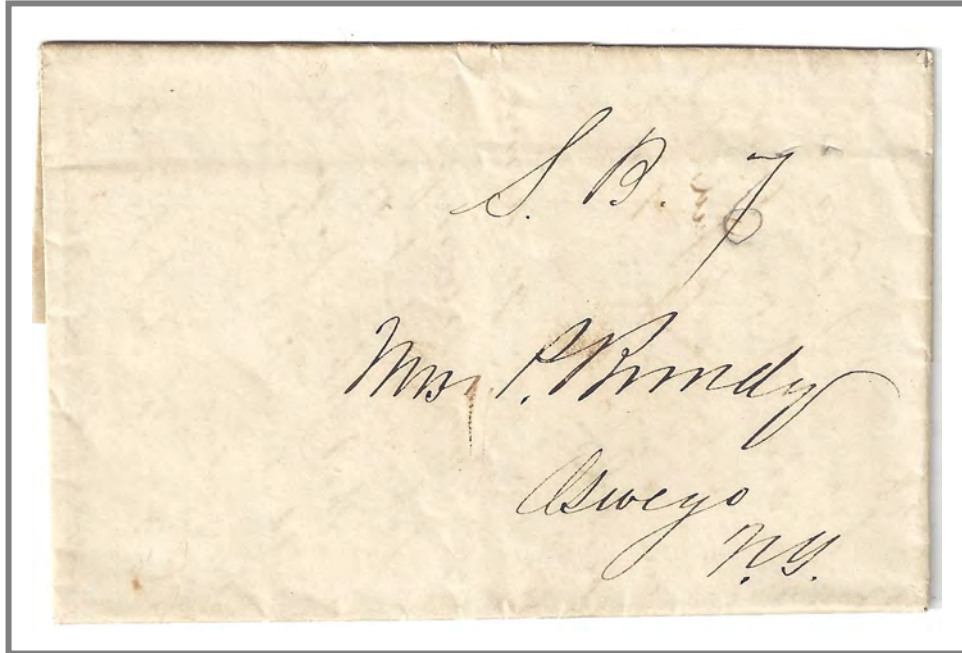 S. B. 7
Mrs. P. Bundy
Oswego
N.Y.